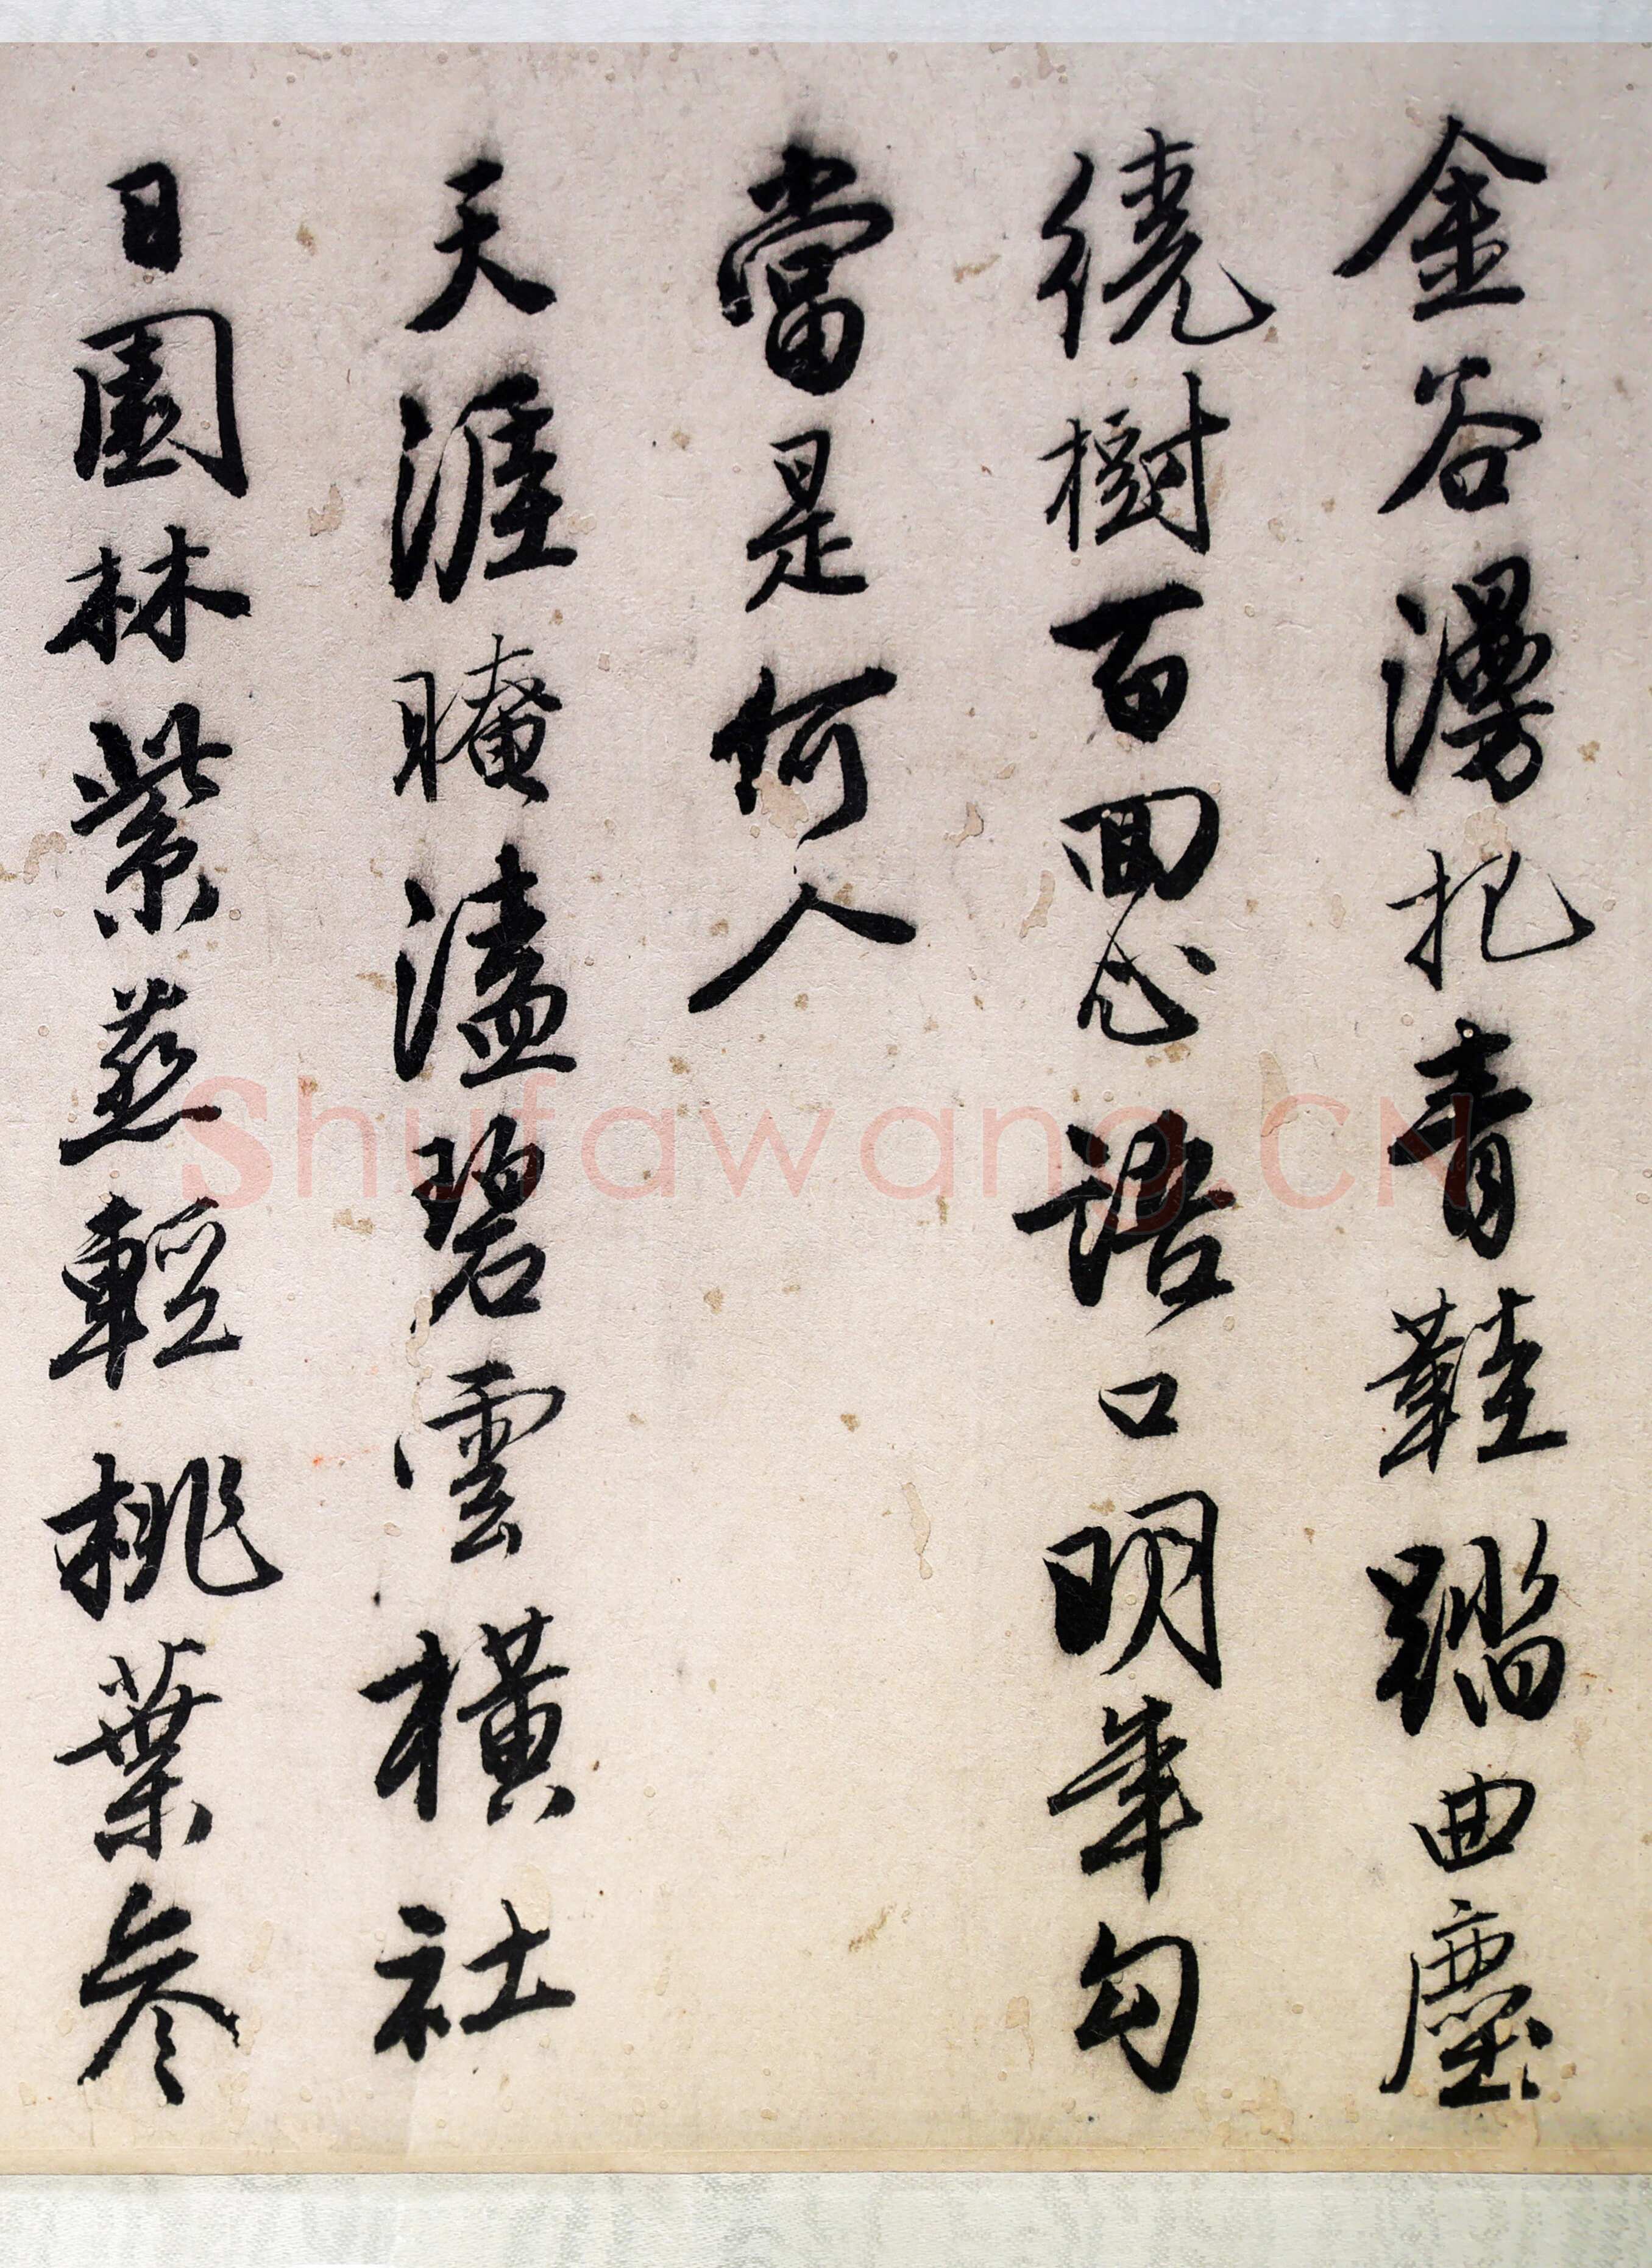 金谷漫把青鞋踏曲塵
繞樹百回心語口明年勾
當是何人
天涯晻溘碧雲橫社
日園林紫燕輕桃葉參
Shufawang.CN